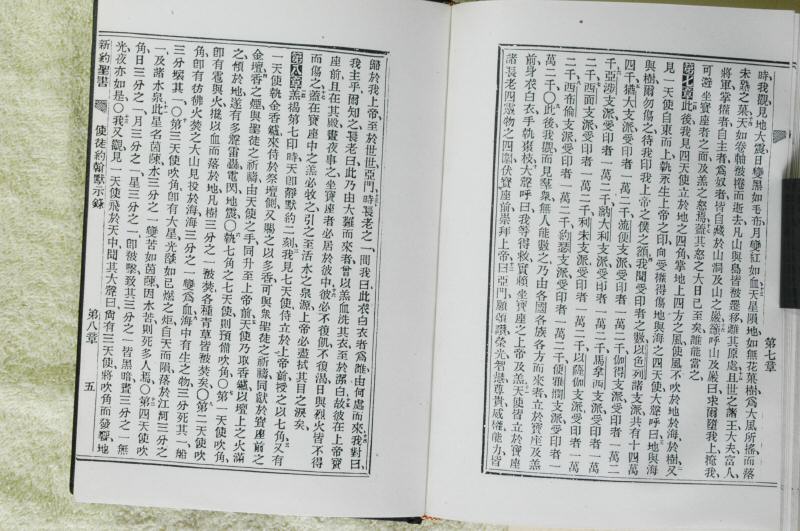 第七章
時我觀見地大震日變黑如毛布月變紅如血天星隕地如無花菓樹爲大風所搖而落
未熟之菓天如卷軸被捲而逝去凡山與島皆被遷移離其原處且世之諸王大夫富人
將軍掌權者自主者爲奴者皆自藏於山洞及山之巖謂呼山及巖曰求爾墮我上掩我
可避坐寶座者之面及羔之怒焉蓋其怒之大日已至矣誰能當之
第七章此後我見四天使立於地之四角掌地上四方之風使風不吹於地於海於樹又
見一天使自東而上執永生上帝之印向受權得傷地與海之四天使大聲呼曰地與海
與樹爾勿傷之待我印我上帝之僕之額我聞受印者之數以色列諸支派共有十四萬
四千猶大支派受印者一萬二千流便支派受印者一萬二千伽得支派受印者一萬二
千亞涉支派受印者一萬二千納大利支派受印者一萬二千馬拿西支派受印者一萬
二千西面支派受印者一萬二千利未支派受印者一萬二千以薩伽支派受印者一萬
二千西布倫支派受印者一萬二千約瑟支派受印者一萬二千便雅憫支派受印者一
萬二千〇此後我觀而見羣衆無人能數之乃由各國各族各方而來者立於寶座及羔
前身衣白衣手執棗枝大聲呼曰我等得救實賴坐寶座之上帝及羔天使皆立於寶座
諸長老四靈物之四圍伏寶座前崇拜上帝曰亞門願頌讚榮光智慧尊貴威權能力皆
歸於我上帝至於世世亞門時長老之一問我曰此衣白衣者爲誰由何處而來我對曰
我主乎爾知之長老曰此乃由大難而來者曾以羔血洗其衣至於潔白故彼在上帝寶
座前且在其殿晝夜事之坐寶座者必居於彼中彼必不復飢不復渴日與烈火皆不得
而傷之蓋在寶座中之羔必牧之引之至活水之泉源上帝必盡拭其目之淚矣
第八章羔揭第七印時天卽靜默約二刻我見七天使侍立於上帝前授之以七角又有
一天使執金香鑪來侍於祭壇側又賜之以多香可與衆聖徒之祈禱同獻於寶座前之
金壇香之煙與聖徒之祈禱由天使之手同升至上帝前天使乃取香鑪以壇上之火滿
之傾於地遂有多聲雷轟電閃地震〇執七角之七天使則預備吹角〇第一天使吹角
卽有雹與火攙以血而落於地凡樹三分之一被焚各種青草皆被焚矣〇第二天使吹
角卽有彷彿火焚之大山見投於海海三分之一變爲血海中有生之物三分死其一船
三分壞其一〇第三天使吹角卽有大星光燄如已燃之炬自天而隕落於江河三分之
一及諸水泉此星名茵蔯水三分之一變苦如茵蔯因水苦則死多人焉〇第四天使吹
角日三分之一月三分之一星三分之一卽被擊致其三分之一皆黑暗晝三分之一無
光夜亦如是〇我又觀見一天使飛於天中聞其大聲曰尙有三天使將吹角而發聲地
新約聖書 使徒約翰默示錄 第八章 五